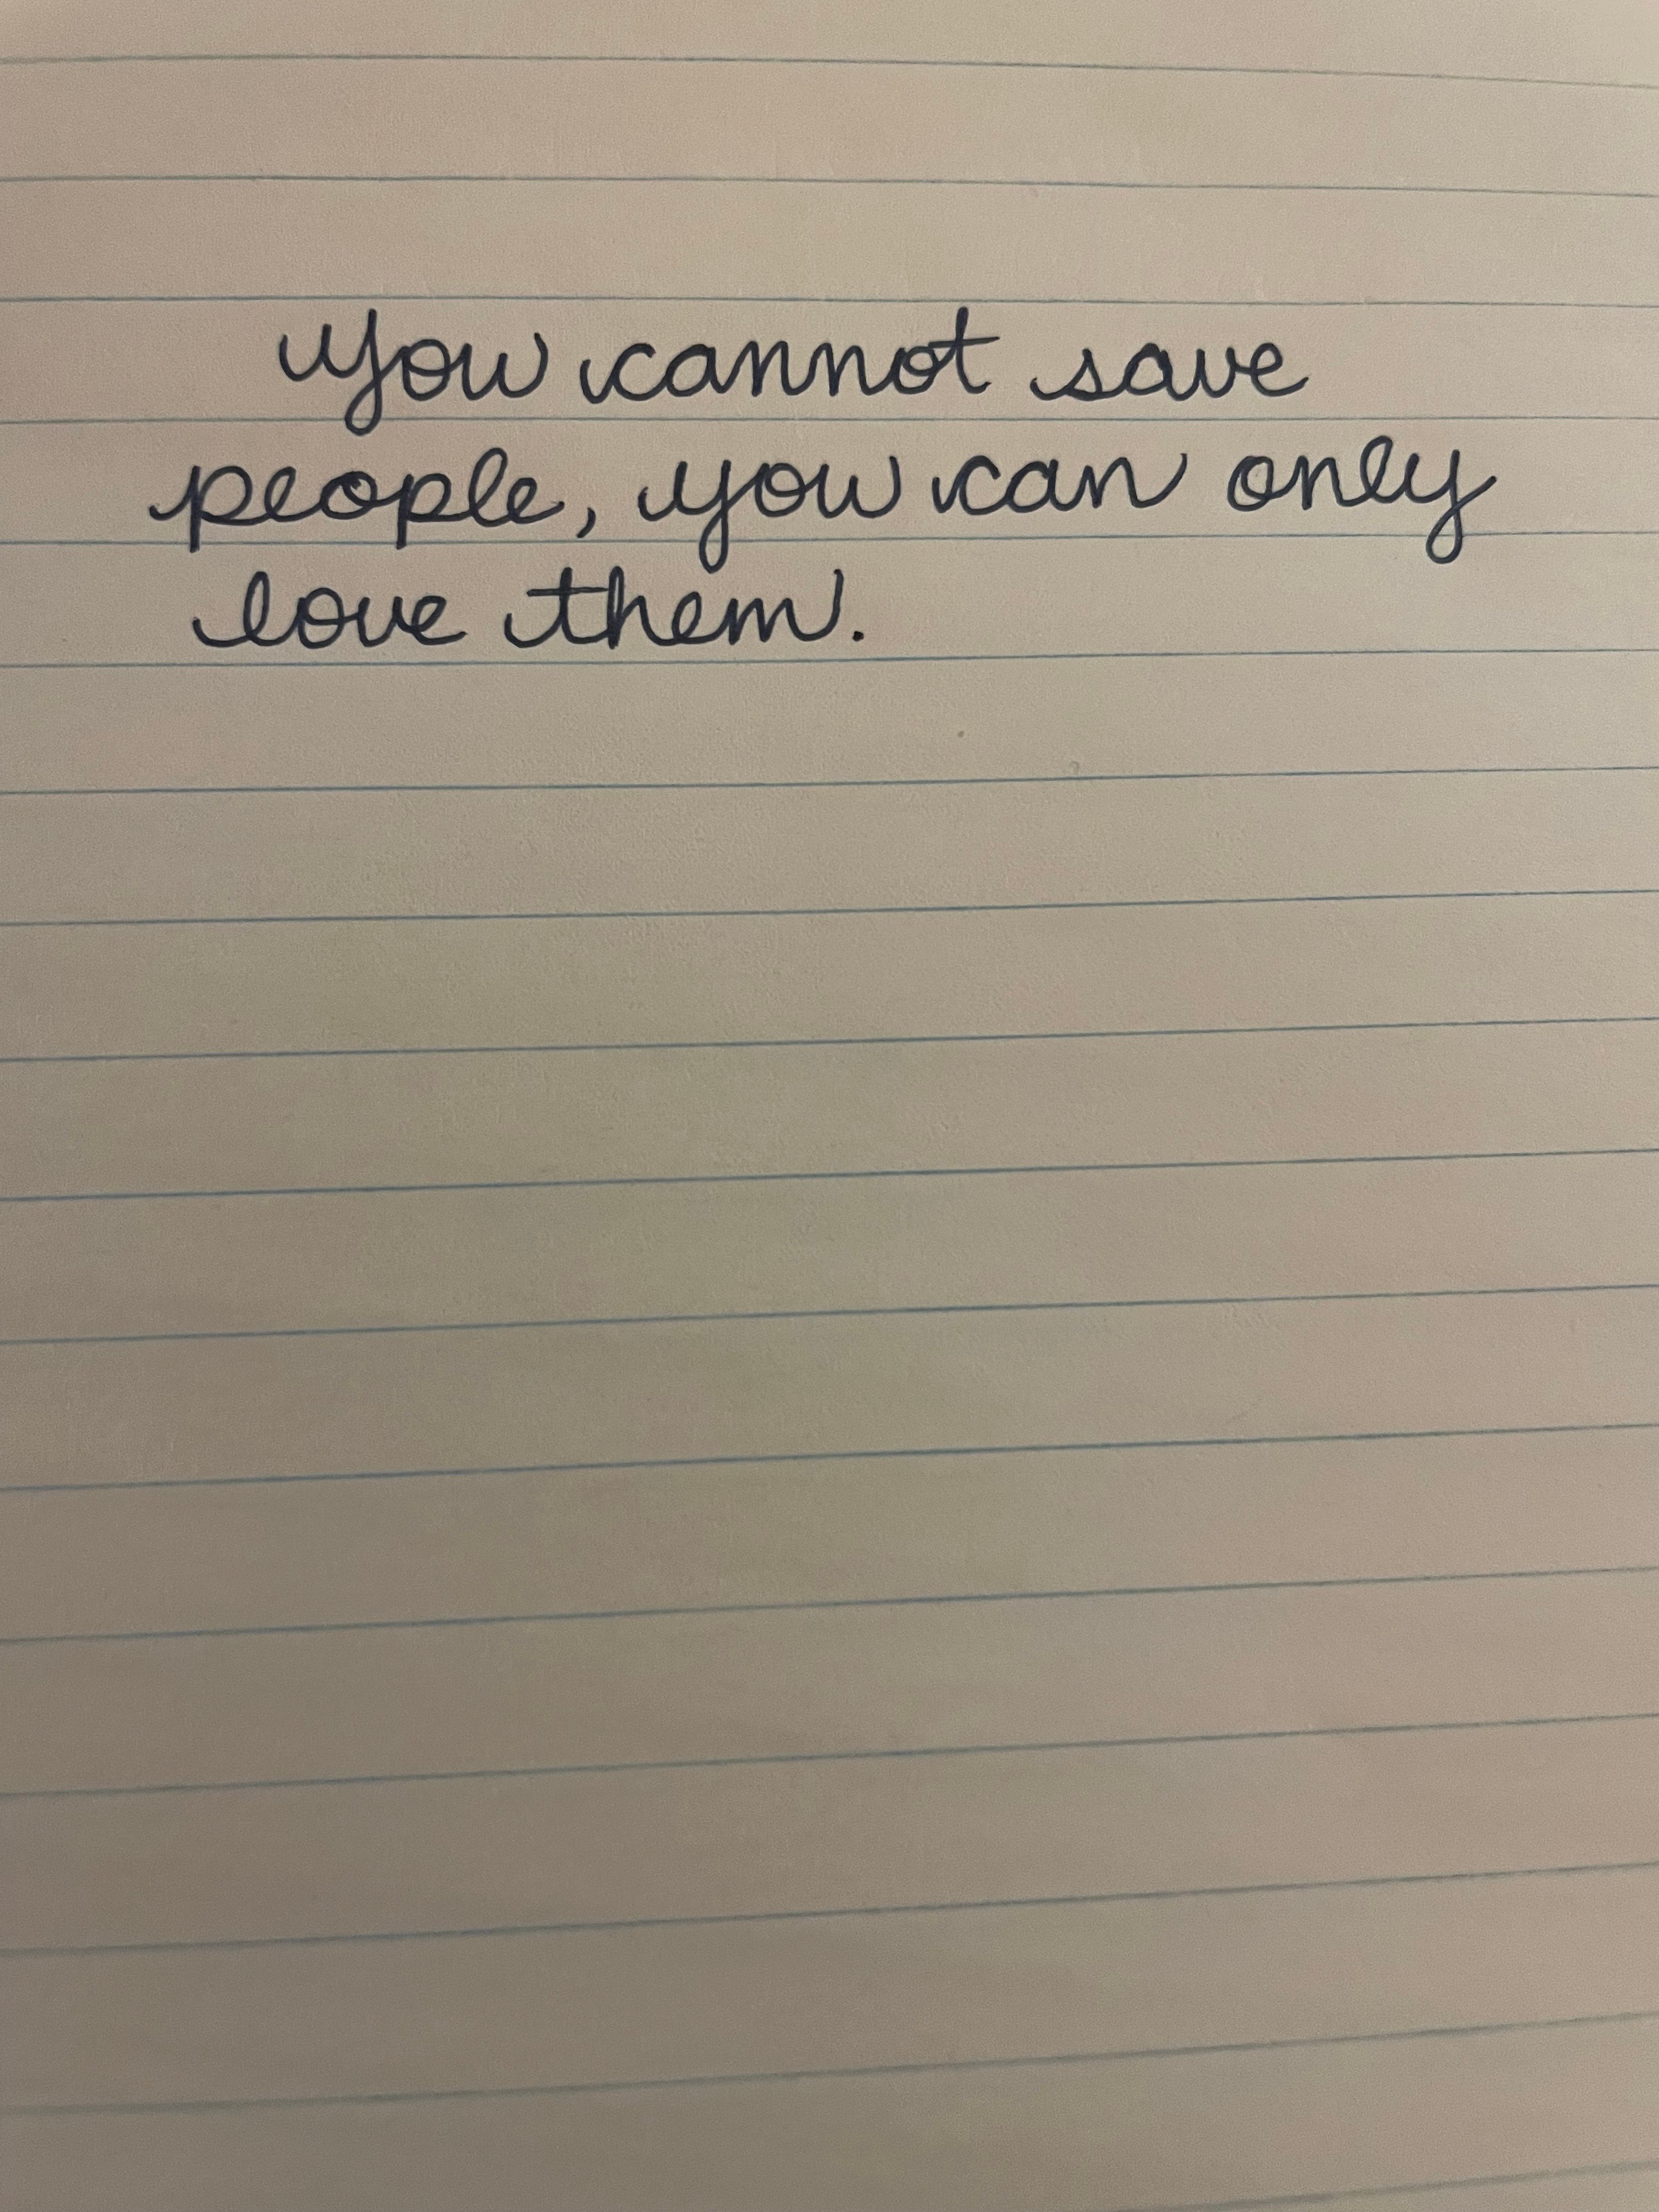 You cannot save
people, you can only
love them.